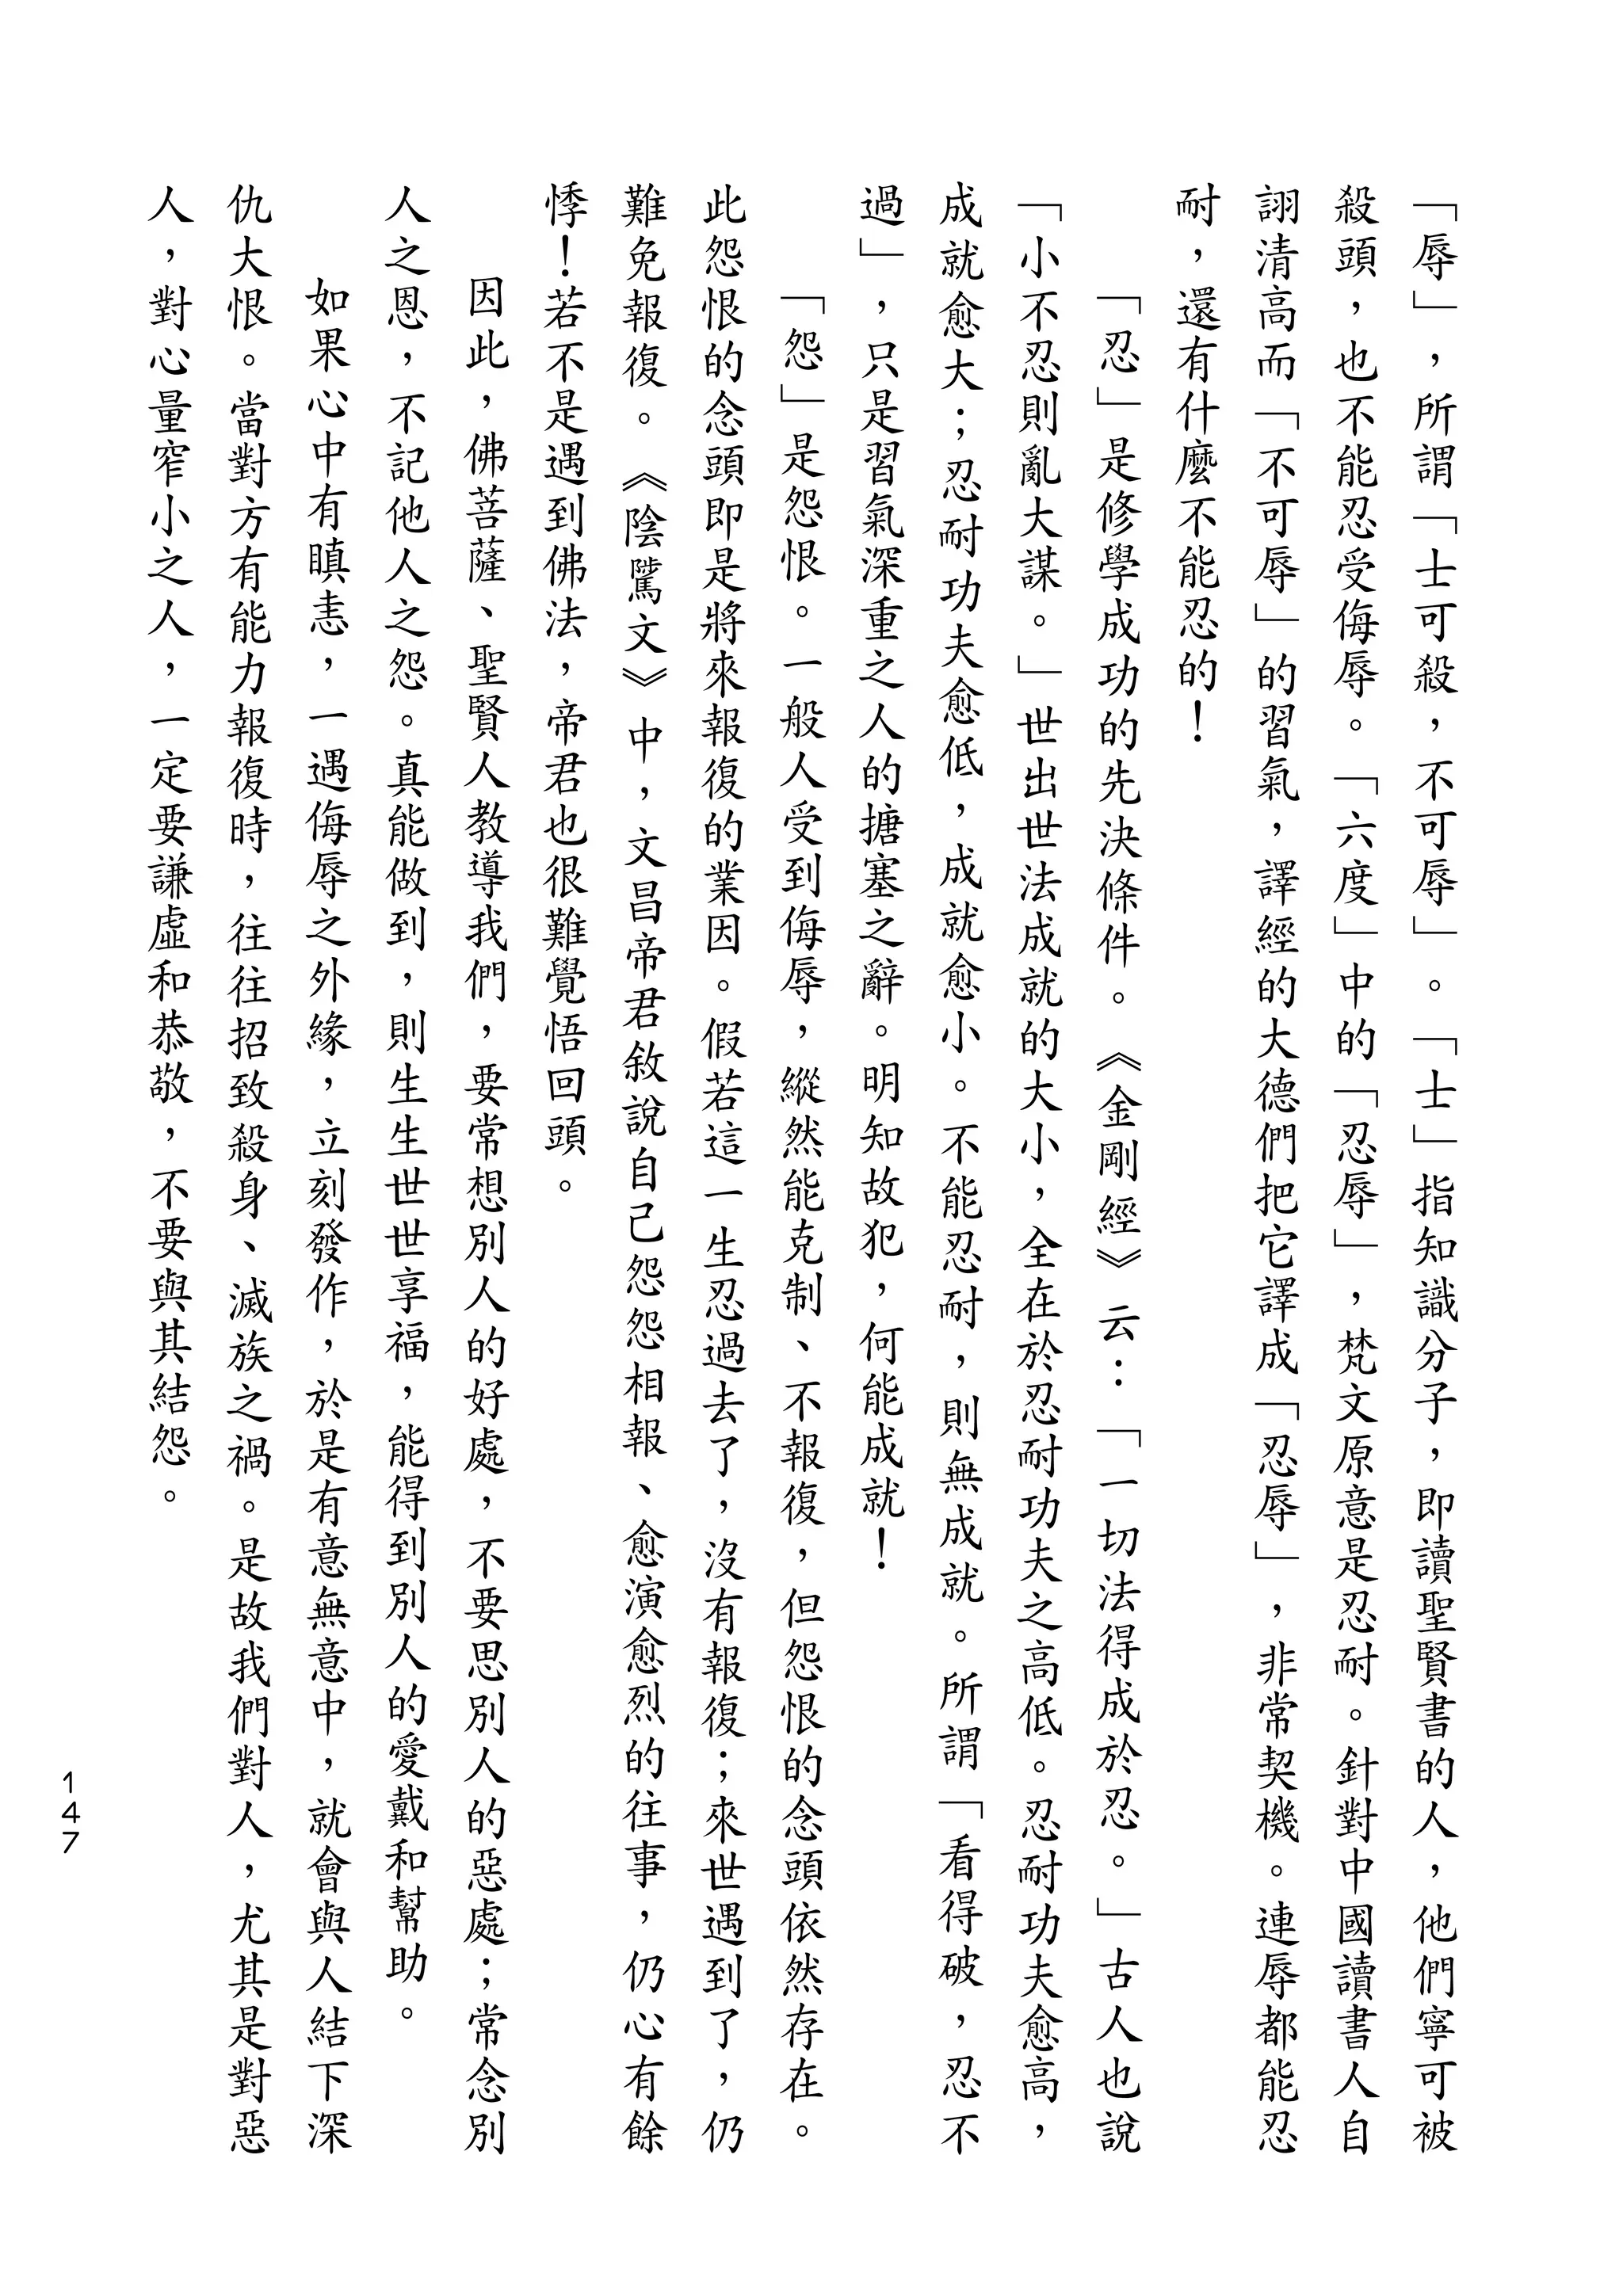 「辱」，所謂「士可殺，不可辱」。「士」指知識分子，即讀聖賢書的人，他們寧可被
殺頭，也不能忍受侮辱。「六度」中的「忍辱」，梵文原意是忍耐。針對中國讀書人自
詡清高而「不可辱」的習氣，譯經的大德們把它譯成「忍辱」，非常契機。連辱都能忍
耐，還有什麼不能忍的！
「忍」是修學成功的先決條件。《金剛經》云：「一切法得成於忍。」古人也說
「小不忍則亂大謀。」世出世法成就的大小，全在於忍耐功夫之高低。忍耐功夫愈高，
成就愈大；忍耐功夫愈低，成就愈小。不能忍耐，則無成就。所謂「看得破，忍不
過」，只是習氣深重之人的搪塞之辭。明知故犯，何能成就！
「怨」是怨恨。一般人受到侮辱，縱然能克制、不報復，但怨恨的念頭依然存在。
此怨恨的念頭即是將來報復的業因。假若這一生忍過去了，沒有報復；來世遇到了，仍
難免報復。《陰騭文》中，文昌帝君敘說自己怨怨相報、愈演愈烈的往事，仍心有餘
悸！若不是遇到佛法，帝君也很難覺悟回頭。
因此，佛菩薩、聖賢人教導我們，要常想別人的好處，不要思別人的惡處；常念別
人之恩，不記他人之怨。真能做到，則生生世世享福，能得到別人的愛戴和幫助。
如果心中有瞋恚，一遇侮辱之外緣，立刻發作，於是有意無意中，就會與人結下深
仇大恨。當對方有能力報復時，往往招致殺身、滅族之禍。是故我們對人，尤其是對惡
人，對心量窄小之人，一定要謙虛和恭敬，不要與其結怨。
147